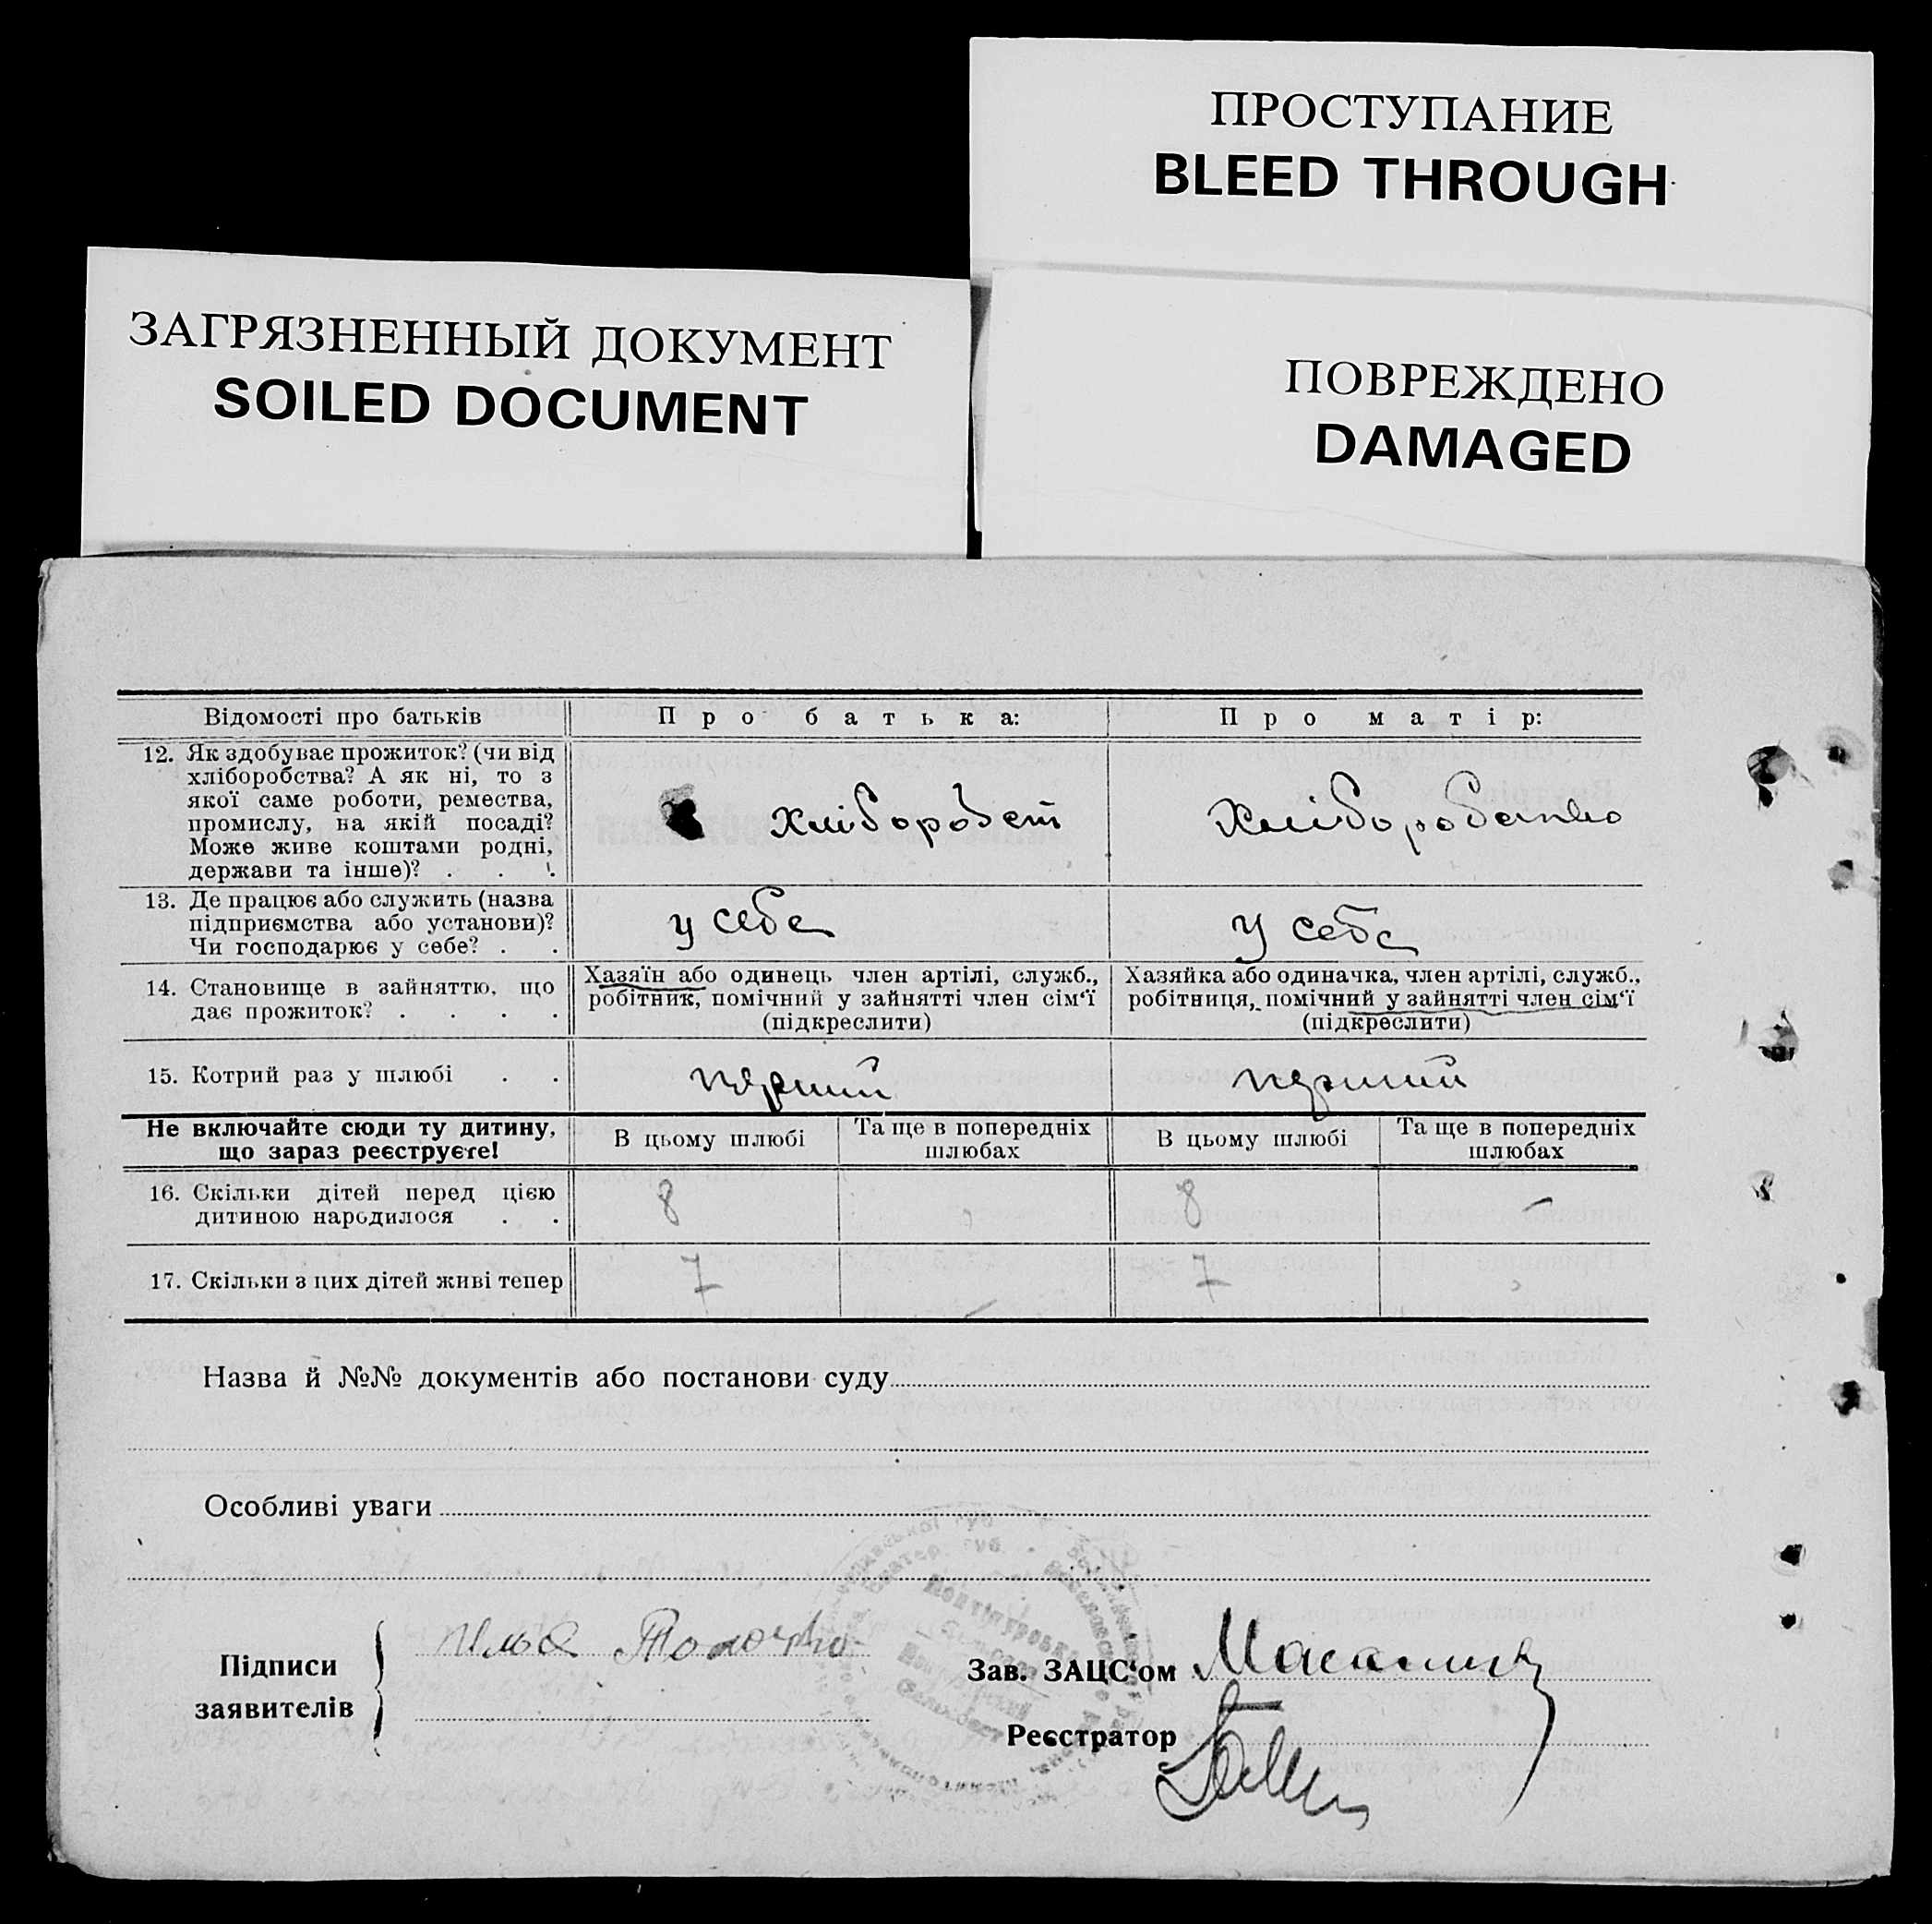 ПРОСТУПАНИЕ
BLEED THROUGH
ЗАГРЯЗНЕННЫЙ ДОКУМЕНТ
SOILED DOCUMENT
ПОВРЕЖДЕНО
DAMAGED
Відомості про батьків Про батька: Про матір:
12. Як здобуває прожиток? (чи від
хліборобства? А як ні, то з
якої саме роботи, ремества,
промислу, на якій посаді?
Може живе коштами родні,
держави та інше)? . . .
хлібороб Хлібороб
13. Де працює або служить (назва
підприємства або установи)?
Чи господарює у себе? . .
у себе у себе
14. Становище в зайняттю, що
дає прожиток? . . . .
Хазяїн або одинець член артілі, служб.,
робітник, помічний у зайнятті член сім'ї
(підкреслити)
Хазяйка або одиначка, член артілі, служб.,
робітниця, помічний у зайнятті член сім'ї
(підкреслити)
15. Котрий раз у шлюбі . . перший перший
Не включайте сюди ту дитину,
що зараз реєструєте!
В цьому шлюбі
Та ще в попередніх
шлюбах
В цьому шлюбі
Та ще в попередніх
шлюбах
16. Скільки дітей перед цією
дитиною народилося . .
8 8 –
17. Скільки з цих дітей живі тепер 7 – 7
Назва й №№ документів або постанови суду
Особливі уваги
Підписи
заявителів
Зав. ЗАЦС'ом
Реєстратор